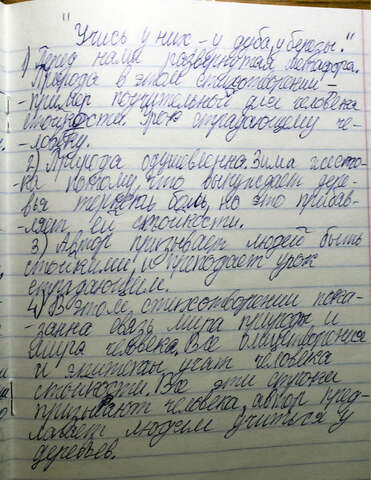 "Учись у них - у дуба, у березы."
1) Перед нами развернутая метафора.
Природа в этом стихотворении -
- пример поучительной для человека
стойкости. Урок страдающему че-
- ловеку.
2) Природа одушевленна. Зима жесто-
- ка потому, что вынуждает дере-
- вья терпеть боль, но это прибав-
- ляет ей стойкости.
3) Автор призывает людей быть
стойкими, и преподает урок
страдающим.
4) В этом стихотворении пока-
- занна связь мира природы и
мира человека. Все олицетворения
и эпитеты учат человека
стойкости. Все эти строки
призывают человека, автор пред-
- лагает людям учиться у
деревьев.